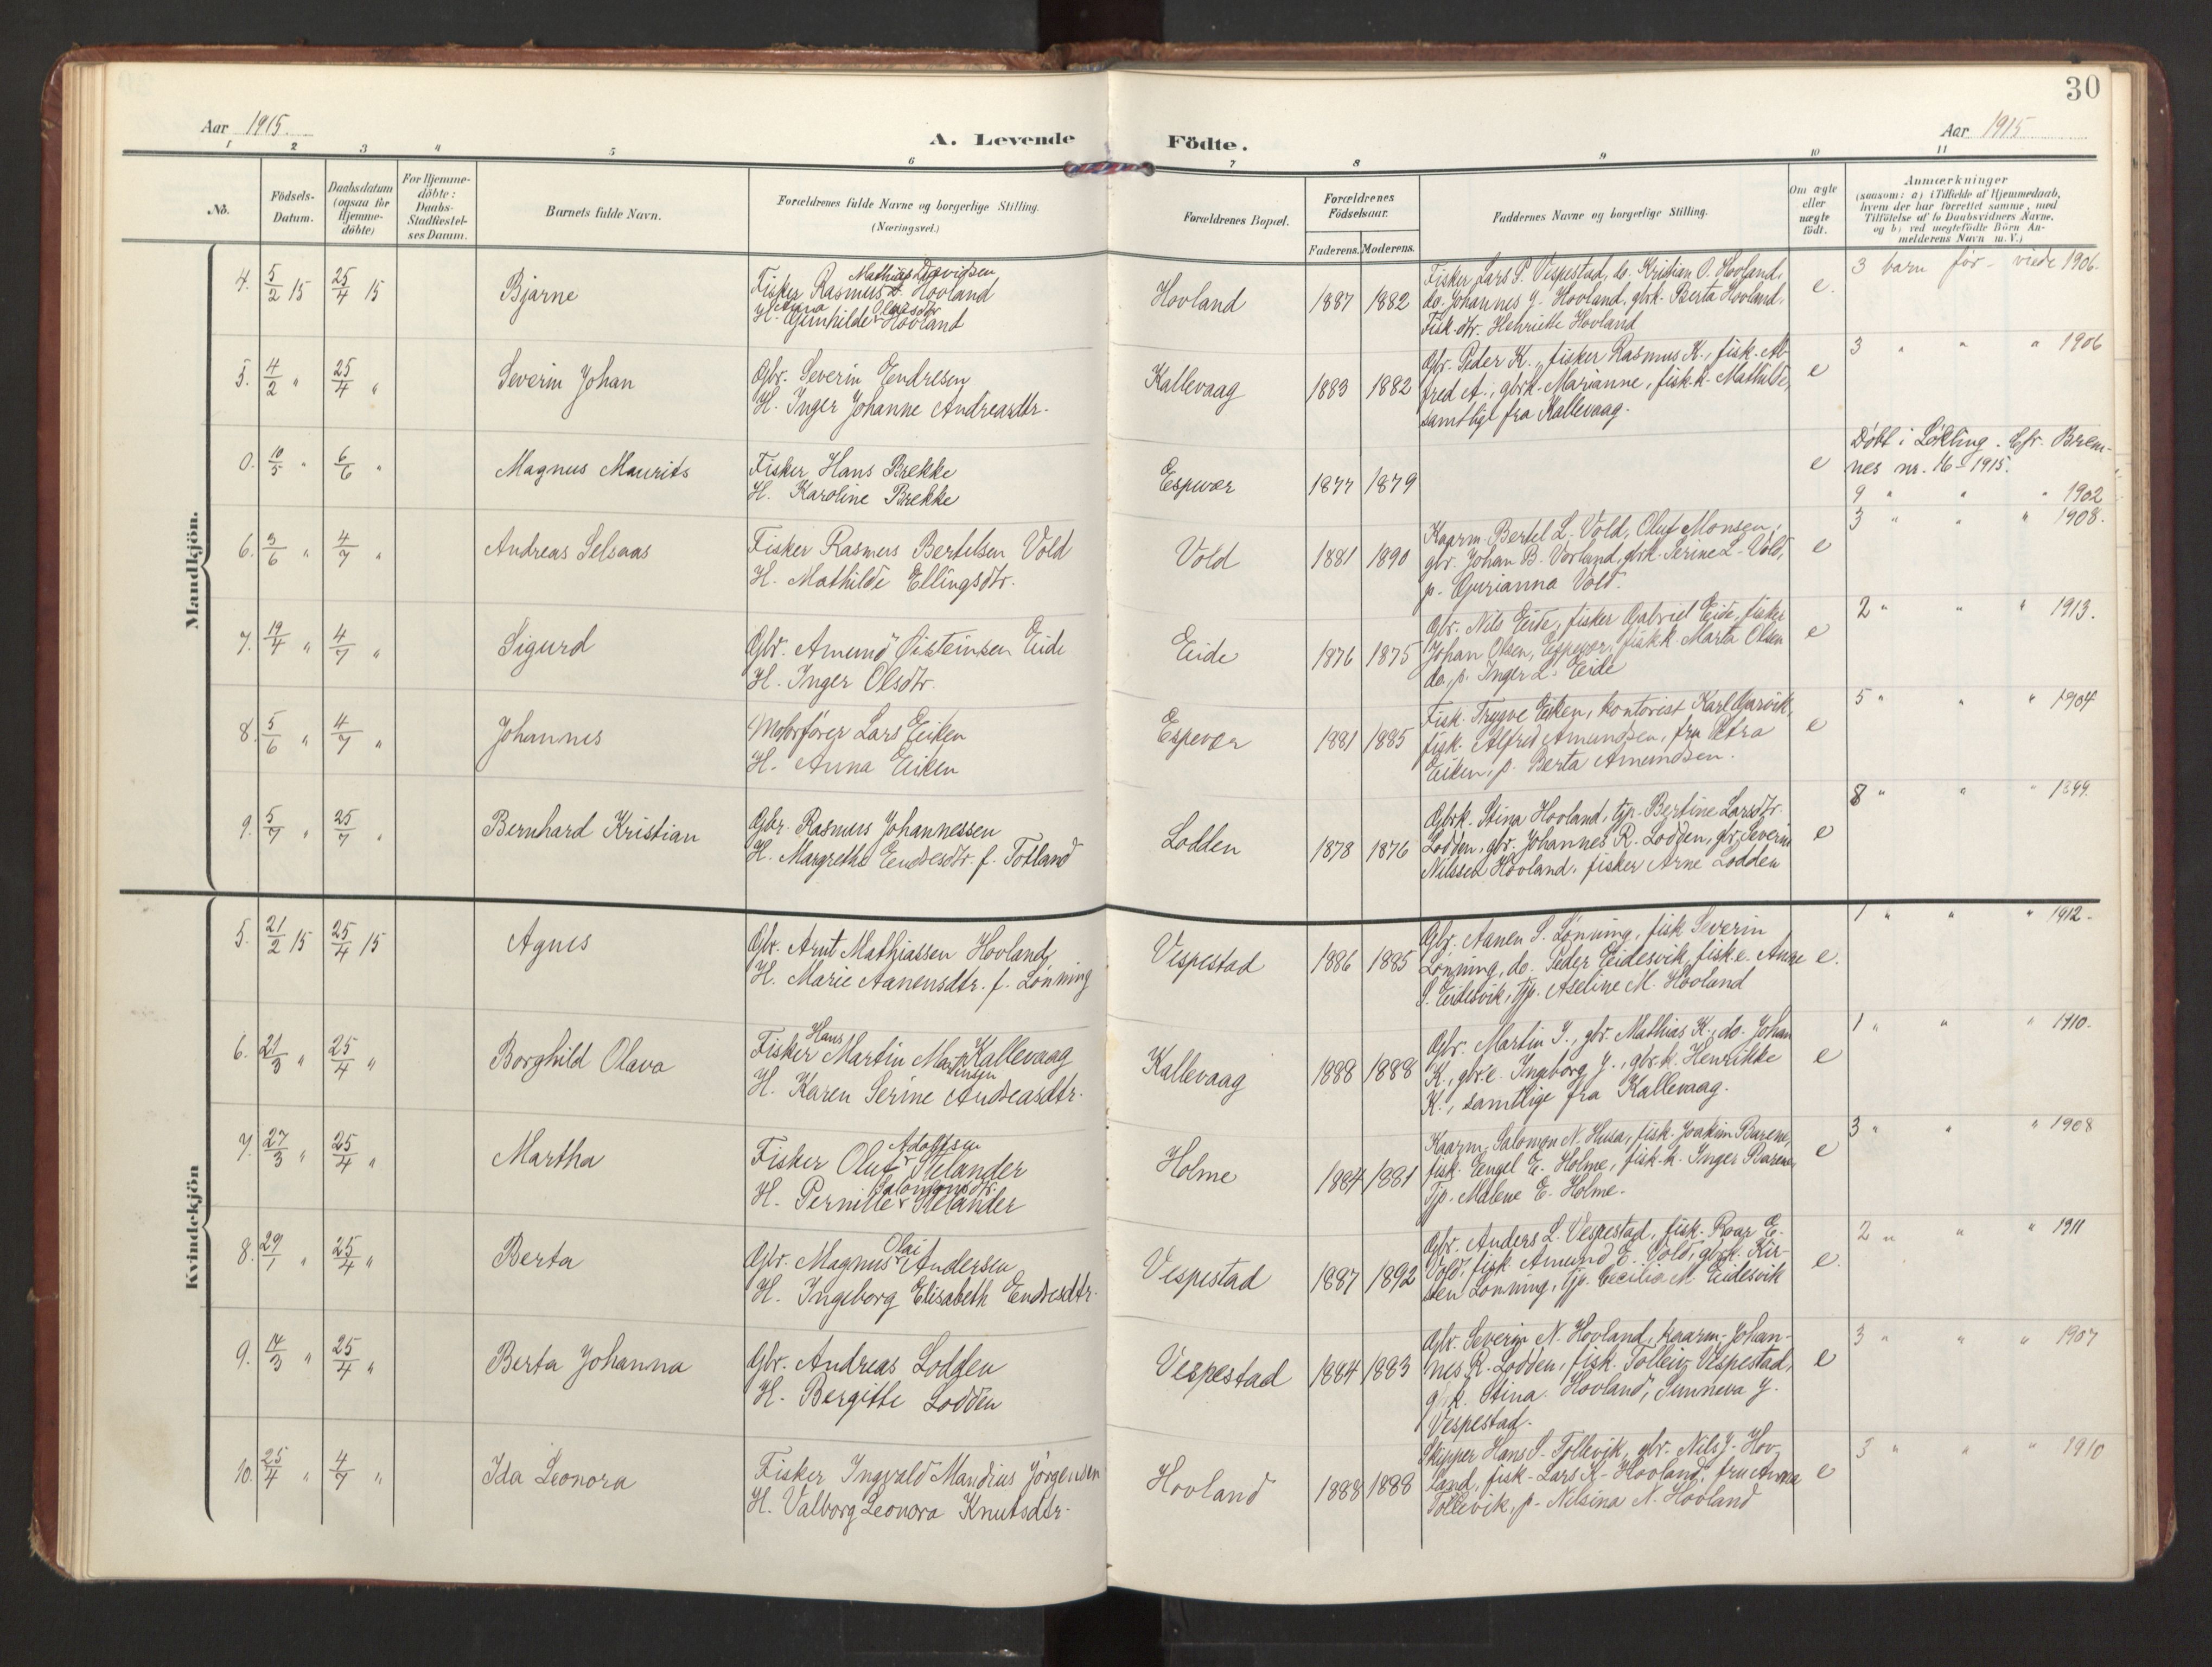 30
Aar 1915.
A. Levende Födte.
Aar 1915
1 2 3 4 5 6 7 8 9 10 11
No.
Födsels-Datum.
Daabsdatum (ogsaa for Hjemme-döbte)
For Hjemme-döbte: Daabs-Stadfæstel-ses Datum.
Barnets fulde Navn.
Forældrenes fulde Navne og borgerlige Stilling. (Næringsvei.)
Forældrenes Bopæl.
Forældrenes Födselsaar.
Faderens. Moderens.
Faddernes Navne og borgerlige Stilling.
Om ægte eller uægte födt.
Anmærkninger
(saasom: a) i Tilfælde af Hjemmedaab,
hvem der har forrettet samme, med
Tilföielse af to Daabsvidners Navne,
og b) ved uægtefödte Börn An-
melderens Navn m. V.)
Mandkjön.
4. 5/2 15 25/4 15 Bjarne
Fisker Rasmus Mathias Davidsen Hovland
H. Gunhilde Olsdtr Hovland
Hovland 1887 1882
Fisker Lars P. Vespestad, do. Kristian O. Hovland,
do. Johannes J. Hovland, gbrk. Berta Hovland,
Fisk. dtr. Henriette Hovland
e.
3 barn før - viede 1906.
5. 4/2 " 25/4 " Severin Johan
Gbr. Severin Endresen
H. Inger Johanne Andreasdtr.
Kallevaag 1883 1882
Gbr. Peder K., fisker Rasmus K., fisk. Al-
fred A., gbrk. Marianne, fisk.k. Mathilde,
samtligt fra Kallevaag.
e
3 " " " 1906
0. 10/5 " 6/6 " Magnus Maurits
Fisker Hans Brekke
H. Karoline Brekke
Espevær 1877 1879
e
Döbt i Løkling. Cfr. Brem-
nes nr. 16 - 1915.
9 " " " 1902
6. 3/6 " 4/7 " Andreas Selsaas
Fisker Rasmus Bertelsen Vold
H. Mathilde Ellingsdtr.
Vold 1881 1890
Kaarm. Bertel L. Vold, Oluf Monsen,
gbr. Johan B. Vorland, gbrk. Serine L. Vold,
p. Gurianna Vold.
e
3 " " " 1908.
7. 19/4 " 4/7 " Sigurd
Gbr. Amund Øisteinsen Eide
H. Inger Olsdtr.
Eide 1876 1875
Gbr. Nils Eide, fisker Gabriel Eide, fisker
Johan Olsen, Espevær, fisk.k. Marta Olsen
do., p. Inger L. Eide
e
2 " " " 1913.
8. 5/6 " 4/7 " Johannes
Motorfører Lars Eiken
H. Anna Eiken
Espevær 1881 1885
Fisk. Trygve Eiken, kontorist Karl
fisk. Alfred Amundsen, fru Petra
Eiken, p. Berta Amundsen.
e
5 " " " 1904
9. 5/7 " 25/7 " Bernhard Kristian
Gbr. Rasmus Johannessen
H. Margrethe Endresdtr. f. Totland
Lodden 1878 1876
Gbrk. Stina Hovland, tjp. Bertine Larsdtr.
Lodden, gbr. Johannes R. Lodden, gbr. Severin
Nilssen Hovland, fisker Arne Lodden
e
8 " " " 1899.
Kvindekjön
5. 21/2 15 25/4 15 Agnes
Gbr. Arnt Mathiassen Hovland
H. Marie Aanensdtr. f. Lønning
Vespestad 1886 1885
Gbr. Aanen S. Lønning, fisk Severin
Lønning, do. Peder Eidesvik, fisk.e. Anne
S. Eidesvik, tjp. Aseline M. Hovland
e.
1 " " " 1912.
6. 21/3 " 25/4 " Borghild Olava
Fisker Hans Martin Martinsen Kallevaag
H. Karen Serine Andreasdtr.
Kallevaag 1888 1888
Gbr. Martin J., gbr. Mathias K., do. Johan
K., gbr.e. Ingeborg J., gbr.k. Henrikke
K., samtlige fra Kallevaag.
e
1 " " " 1910.
7. 27/3 " 25/4 " Martha
Fisker Oluf Adolfsen Stelander
H. Pernille Salomonsdtr. Stelander
Holme 1884 1881
Kaarm. Salomon N. Husa, fisk. Joakim Barene,
fisk. Engel E. Holme, fisk.k. Inger Barene,
Tjp. Malene E. Holme.
e
3 " " " 1908
8. 29/1 " 25/4 " Berta
Gbr. Magnus Olai Andersen
H. Ingeborg Elisabeth Endresdtr.
Vespestad 1887 1892
Gbr. Anders L. Vespestad, fisk. Roar E.
Vold, fisk Amund E. Vold, gbrk. Kir-
sten Lønning, tjp. Cecilie M. Eidesvik
e.
2 " " " 1911
9. 14/3 " 25/4 " Berta Johanna
Gbr. Andreas Lodden
H. Bergitte Lodden
Vespestad 1884 1883
Gbr. Severin N. Hovland, kaarm. Johan-
nes R. Lodden, fisk. Tolleiv Vespestad,
g.k. Stina Hovland, Sunneva J.
Vespestad.
e
3 " " " 1907
10. 25/4 " 4/7 " Ida Leonora
Fisker Ingvald Mandius Jörgensen
H. Valborg Leonora Knutsdtr.
Hovland 1888 1888
Skipper Hans S. Tollevik, gbr. Nils J. Hov-
land, fisk. Lars K. Hovland, fru Anna
Tollevik, p. Nilsina N. Hovland
e
3 " " " 1910